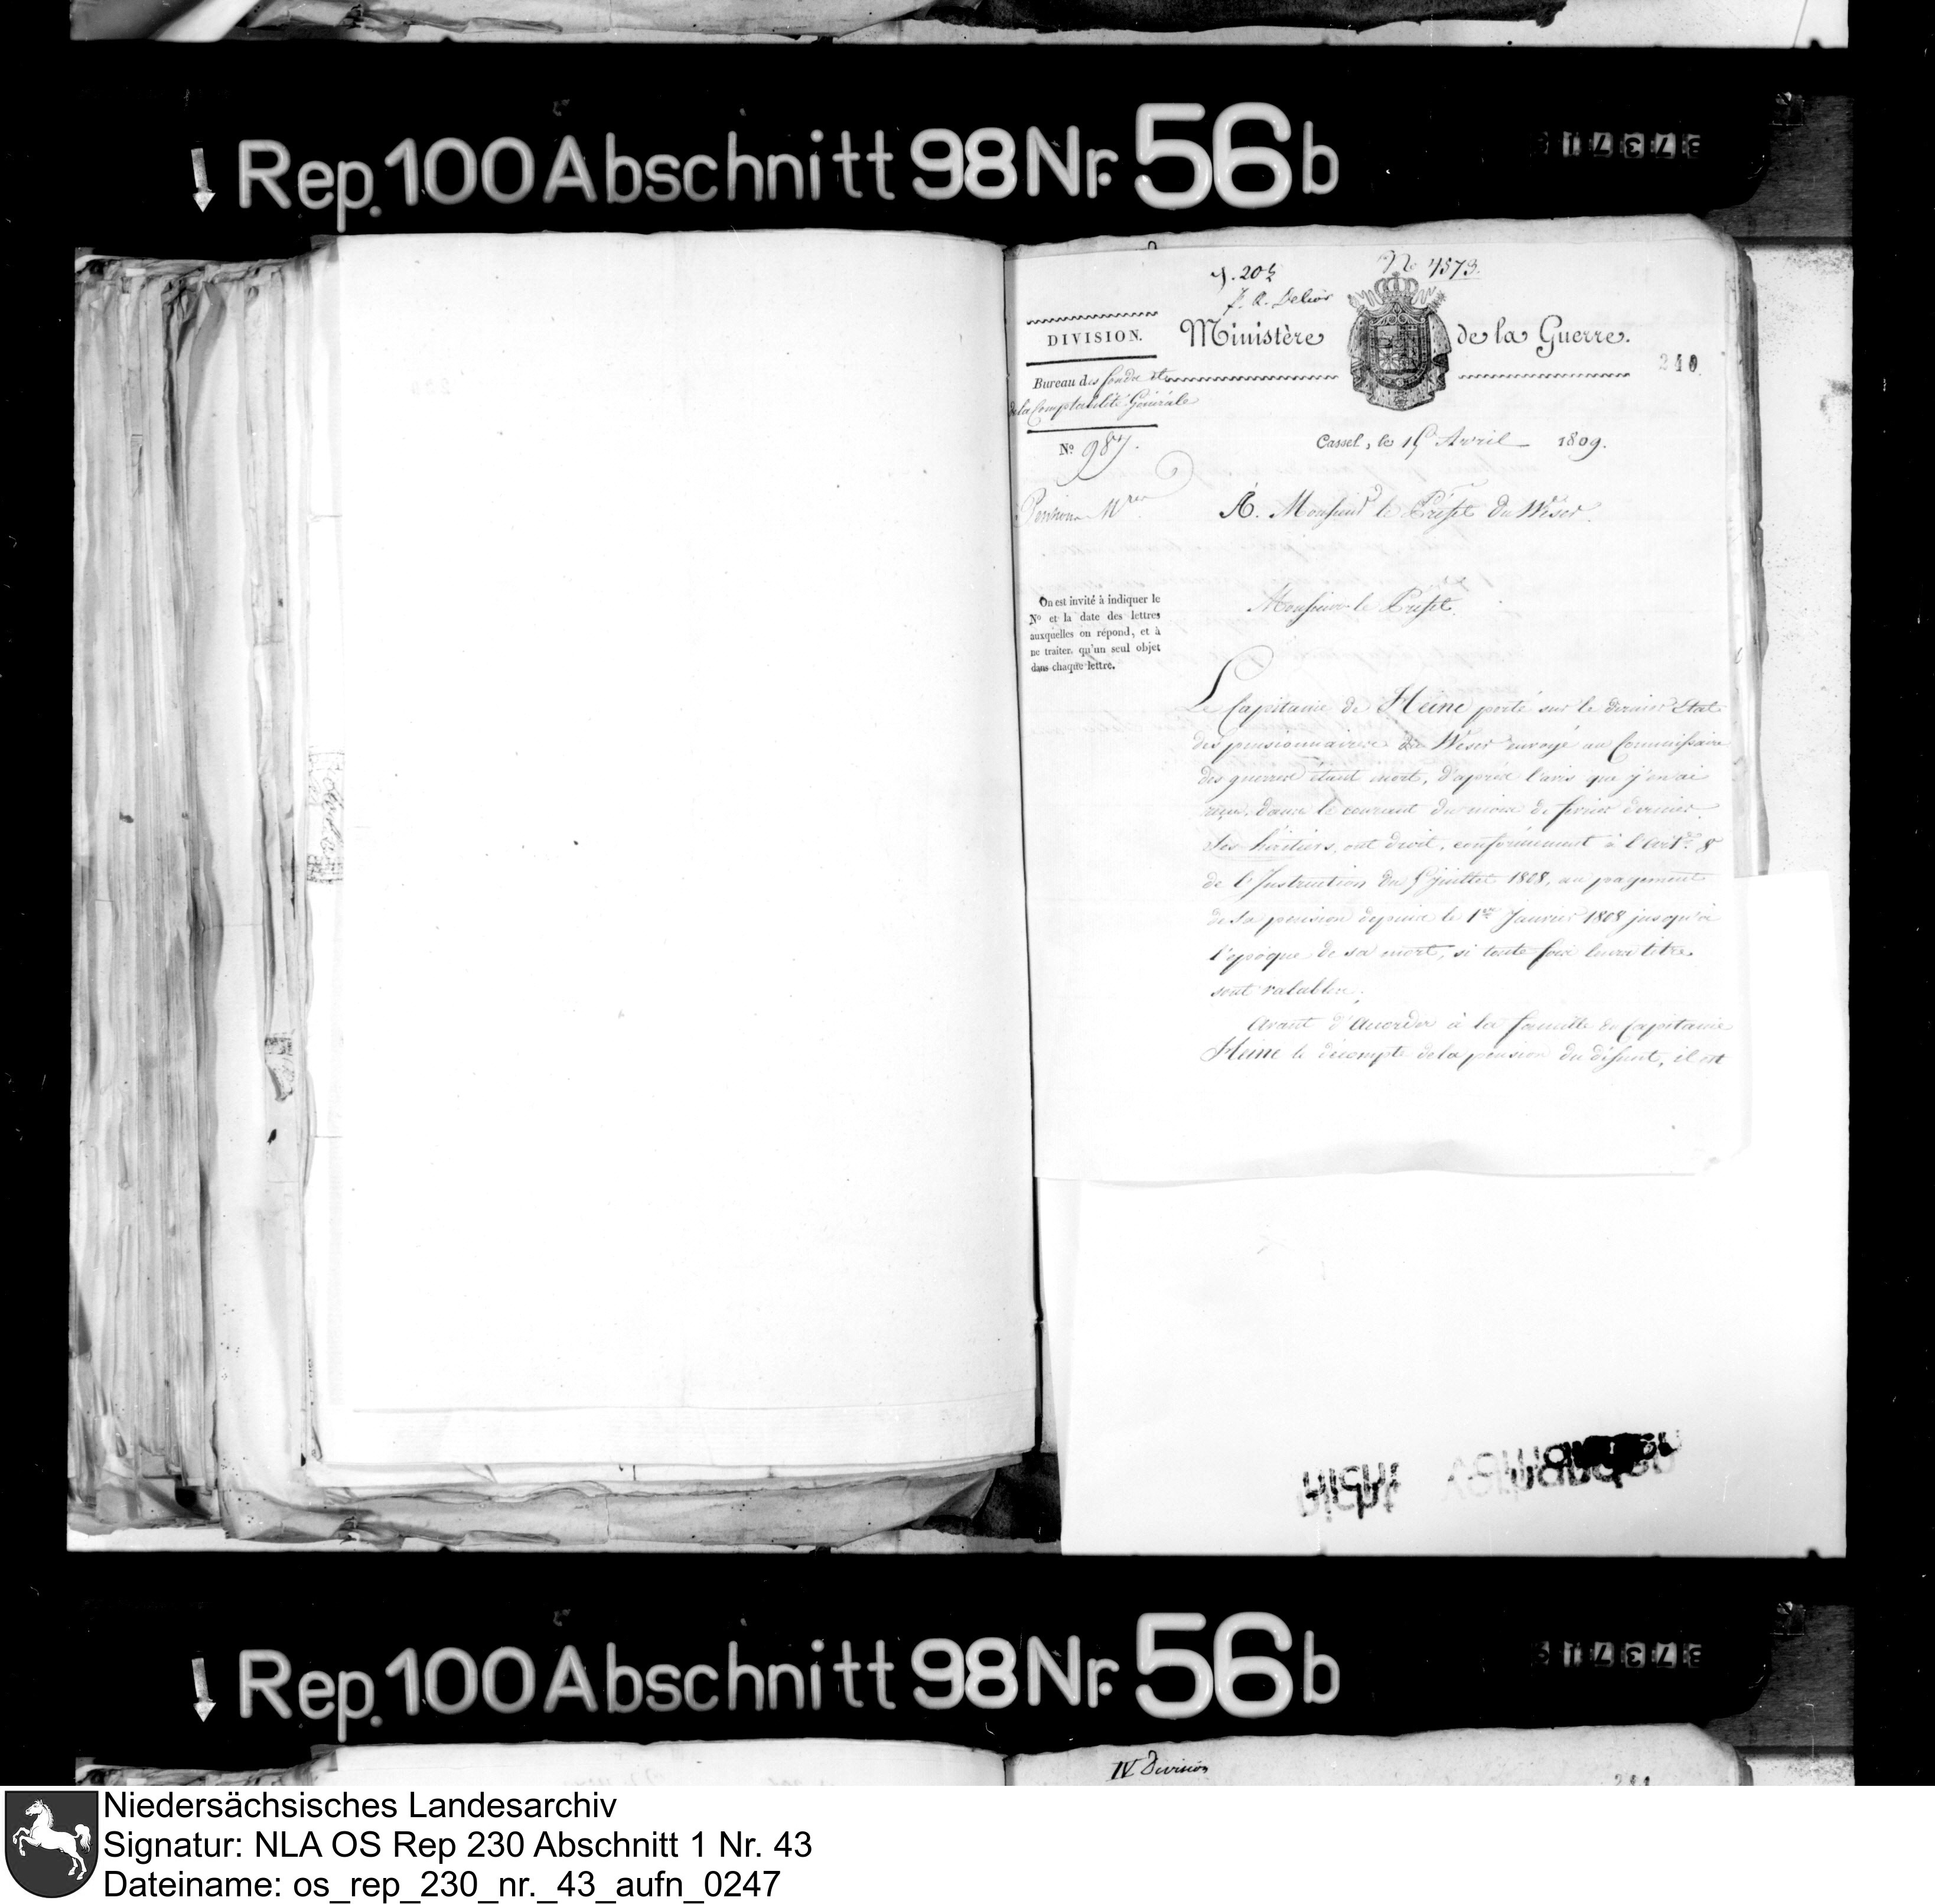 Rep. 100 Abschnitt 98 Nr. 56 b
No 4573.
DIVISION.
Ministère de la Guerre.
210
Bureau des fonds et
de la Comptabilité Générale
No 987.
Cassel, le 15 Avril 1809.
Pensions Mres
À Monsieur le Préfet du Weser.
On est invité à indiquer le
No et la date des lettres
auxquelles on répond, et à
ne traiter, qu'un seul objet
dans chaque lettre.
Monsieur le Préfet.
Le Capitaine de Heine porté sur le dernier Etat
des pensionnaires du Weser envoyé au Commissaire
des guerres étant mort, d'après l'avis que j'en ai
reçu, dans le courant du mois de fevrier dernier.
Ses héritiers, ont droit, conformément à l'Artle 8
de l'Instruction du 5 juillet 1808, au payement
de sa pension depuis le 1er Janvier 1808 jusqu'à
l'époque de sa mort, si toute fois leurs titres
sont valables.
Avant d'accorder à la famille du Capitaine
Heine le décompte de la pension du défunt, il est
nicht vorhanden
Rep. 100 Abschnitt 98 Nr. 56 b
IV Division
211
Niedersächsisches Landesarchiv
Signatur: NLA OS Rep 230 Abschnitt 1 Nr. 43
Dateiname: os_rep_230_nr._43_aufn_0247